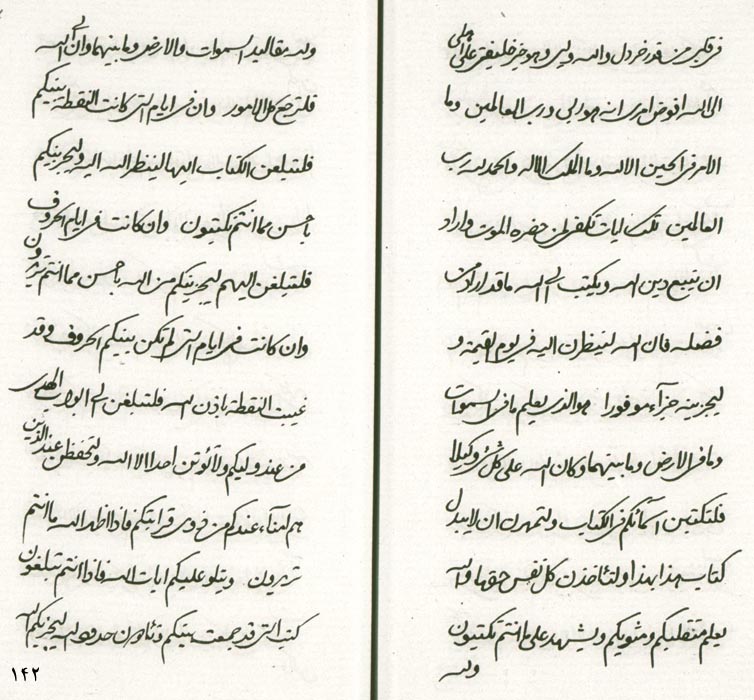 فی قلبی من قدر خردل والله ولیی وهو خیر خلیفتی علی اهلی
الی الله افوض امری انه هو ربی ورب العالمین وما
الامر فی الحین الا لله وما الملک الا لله والحمد لله رب
العالمین تلک ایات تکفی لمن حضره الموت واراد
ان یتبع دین الله ویکتب الی الله ما قد اراد من
فضله فان الله لینظرن الیه فی یوم القیمة و
لیجزینه جزآء موفورا هو الذی یعلم ما فی السموات
وما فی الارض وما بینهما وکان الله علی کل شئ وکیلا
فلتکتبن اسمائکم فی الکتاب ولتمهرن ان لا یبدل
کتاب هذا بهذا ولتاخذن کل نفس حقها والله
یعلم متقلبکم ومثویکم ویشهد علی ما انتم تکتبون
ولله
ولله مقالید السموات والارض وما بینهما وان الی الله
فلترجع کل الامور وان فی ایام التی کانت النقطة بینکم
فلتبلغن الکتاب الیها لینظر الله الیه ولیجزینکم
باحسن مما انتم تکتبون وان کانت فی ایام الحروف
فلتبلغن الیهم لیجزینکم من الله باحسن مما انتم تریدون
وان کانت فی ایام التی لم تکن بینکم الحروف وقد
غیبت النقطة باذن الله فلتبلغن الی ابواب الهدی
من عند ولیکم ولا تؤتون احدا الا الله ولتحفظن عند الذین
هم امنآء عندکم من ذوی قرابتکم فاذا اظهر الله ما انتم
تریدون ویتلو علیکم ایات الله فاذا انتم تبلغون
کتب التی قد جمعت بینکم حدود الله لیجزیکم الله
۱۴۲